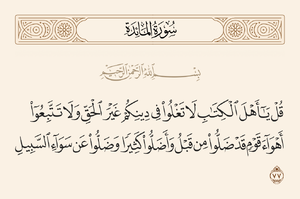 سُورَةُ المَائِدَةِ
بِسْمِ اللَّهِ الرَّحْمَٰنِ الرَّحِيمِ
قُلْ يَٰٓأَهْلَ ٱلْكِتَٰبِ لَا تَغْلُوا۟ فِى دِينِكُمْ غَيْرَ ٱلْحَقِّ وَلَا تَتَّبِعُوٓا۟
أَهْوَآءَ قَوْمٍ قَدْ ضَلُّوا۟ مِن قَبْلُ وَأَضَلُّوا۟ كَثِيرًا وَضَلُّوا۟ عَن سَوَآءِ ٱلسَّبِيلِ
٧٧